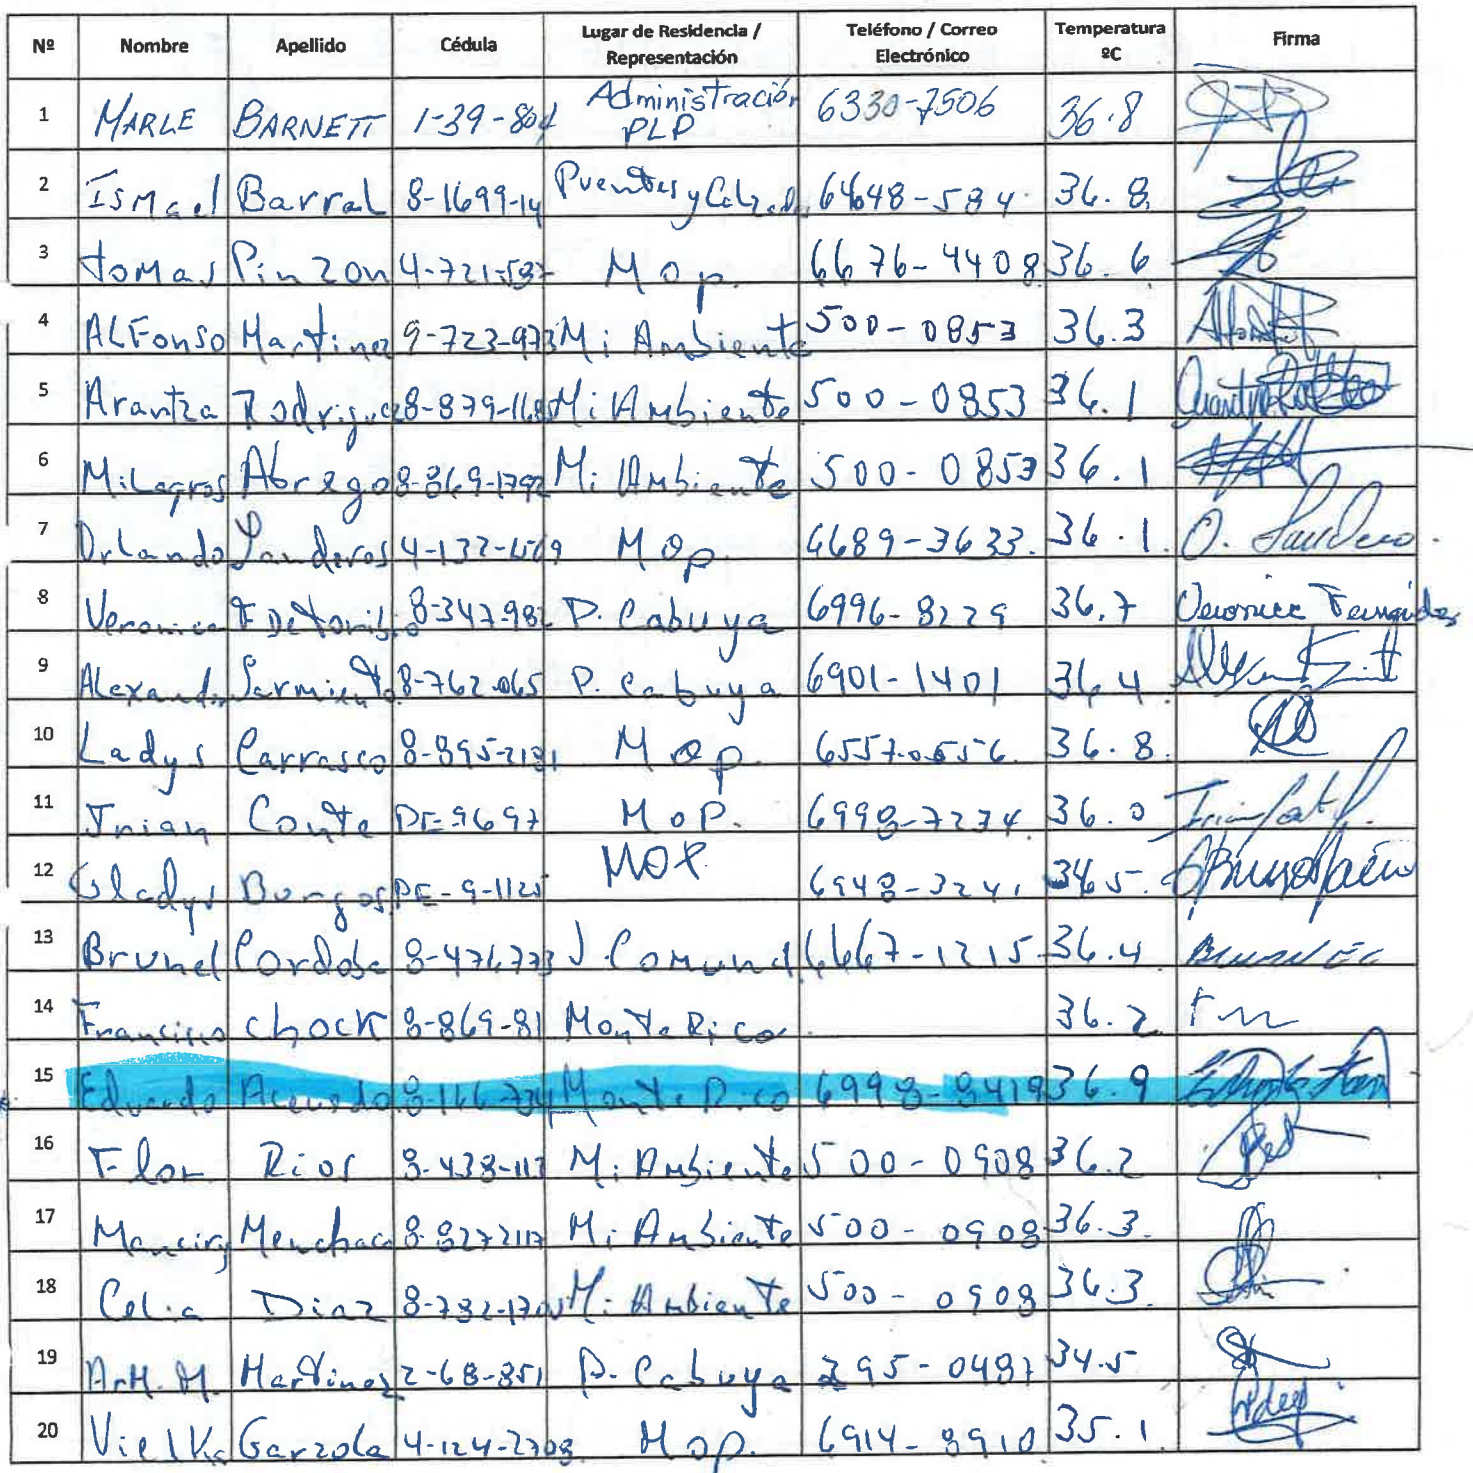 Nº Nombre Apellido Cédula Lugar de Residencia / Representación Teléfono / Correo Electrónico Temperatura ºC Firma
1 MARLE BARNETT 1-39-804 Administración PLP 6330-7506 36.8
2 Ismael Barral 8-1699-14 Puentes y Calzadas 6448-584 36.8
3 tomas Pinzon 4-721-587 Mop. 6676-4408 36.6
4 ALFonso Martinez 9-723-973 Mi Ambiente 500-0853 36.3
5 Arantza Rodriguez 8-879-1680 Mi Ambiente 500-0853 36.1
6 Milagros Abrego 8-869-1792 Mi Ambiente 500-0853 36.1
7 Orlando Sanderos 4-132-1569 Mop. 6689-3633. 36.1. O.
8 Veronica F De 8-347-982 P. Cabuya 6996-8229 36.7 Veronica Fernández
9 Sarmiento 8-762-065 P. Cabuya 6901-1401 36.4
10 Ladys Carrasco 8-895-2131 Mop 6557-0556. 36.8.
11 Irian Conte PE-9697 MoP. 6998-7274 36.0
12 Gladys Burgos PE-9-1125 MOP 6948-3241 34.5
13 Brunel Cordoba 8-476,773 J Comunal 6667-1215 36.4
14 Francisco chock 8-869-81 Monte Rico 36.2
15 Eduardo Acevedo Monte Rico 6998-8418 36.9
16 Flor Rios 8-438-117 Mi Ambiente 500-0908 36.2
17 Menchaca 8-8272117 Mi Ambiente 500-0908 36.3.
18 Celia Diaz Mi Ambiente 500-0908 36.3.
19 Martinez 2-68-851 P. Cabuya 295-0487 34.5
20 Vielka Garzola 4-124-2708 Mop. 6914-8910 35.1